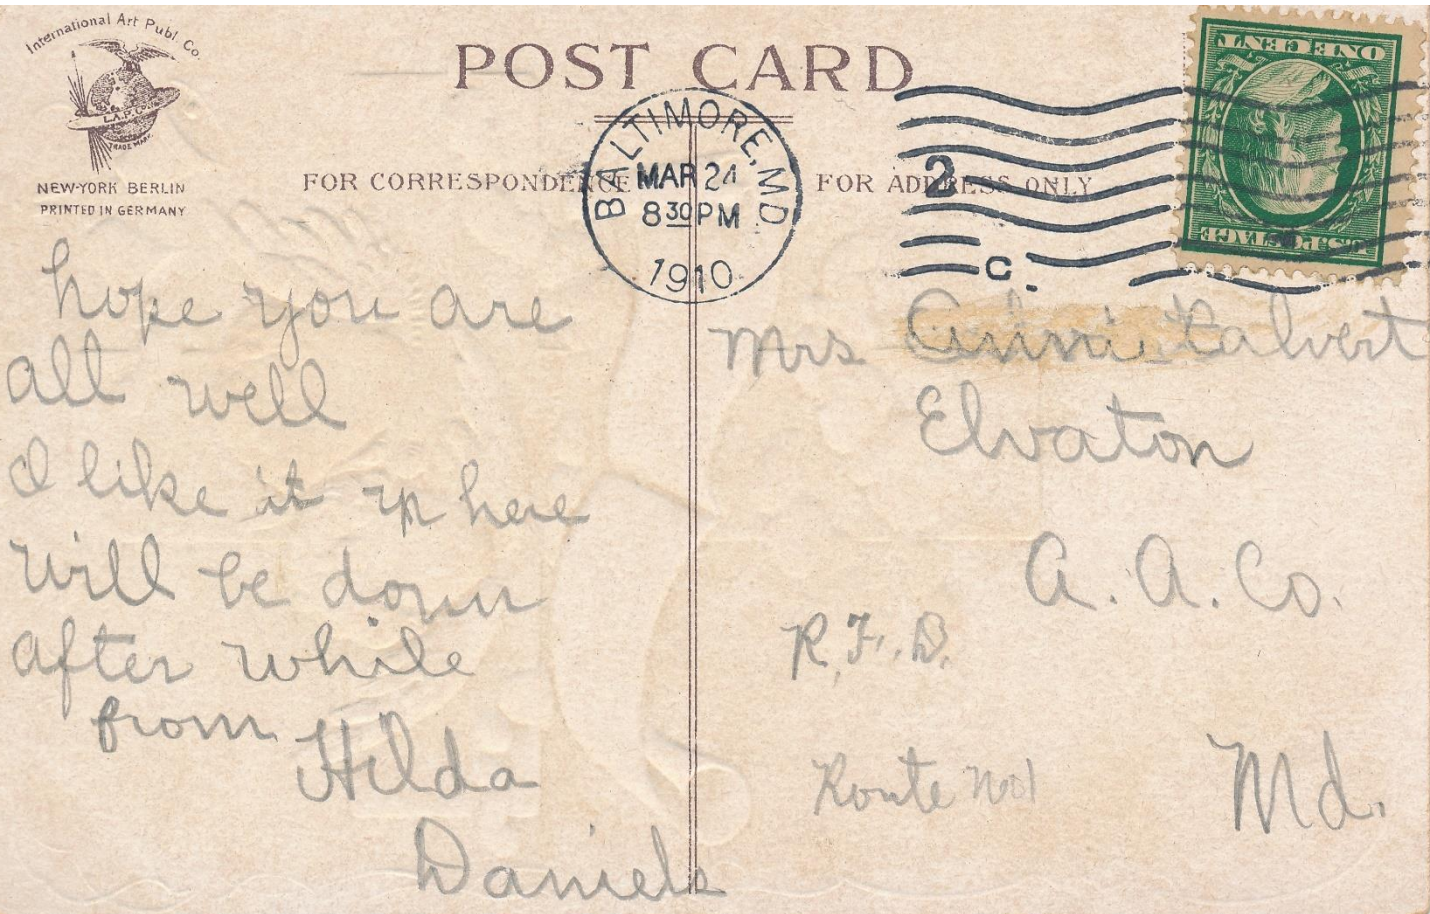 International Art Publ. Co.
I.A.P.Co.
TRADE MARK
NEW-YORK BERLIN
PRINTED IN GERMANY
POST CARD
FOR CORRESPONDENCE
FOR ADDRESS ONLY
BALTIMORE, MD.
MAR 24
8 30 PM
1910
2
C.
ONE CENT
U.S. POSTAGE
hope you are
all well
I like it up here
will be down
after while
from
Hilda
Daniels
Mrs Calvert
Elvaton
A. A. Co.
R. F. D.
Route No 1
Md.